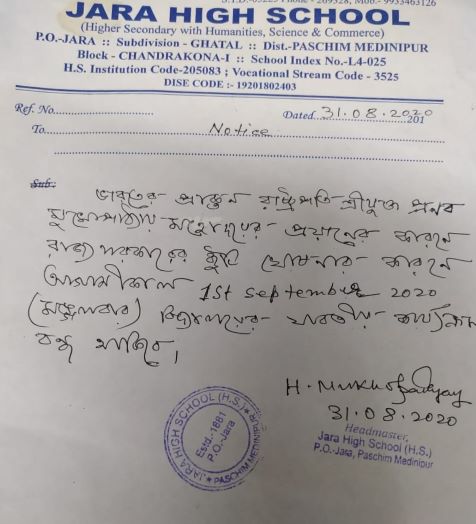 JARA HIGH SCHOOL
(Higher Secondary with Humanities, Science & Commerce)
P.O.-JARA :: Subdivision - GHATAL :: Dist.-PASCHIM MEDINIPUR
Block - CHANDRAKONA-I :: School Index No.-L4-025
H.S. Institution Code-205083 ; Vocational Stream Code - 3525
DISE CODE :- 19201802403
Ref. No.
Dated 31.08.2020 201
To Notice
Sub:
ভারতের প্রাক্তন রাষ্ট্রপতি শ্রীযুক্ত প্রনব
মুখোপাধ্যায় মহাশয়ের প্রয়ানের কারনে
রাজ্য সরকারের ছুটি ঘোষনার কারনে
আগামীকাল 1st September 2020
(মঙ্গলবার) বিদ্যালয়ের যাবতীয় কার্যক্রম
বন্ধ থাকিবে।
H. Mukhopadhyay
31.08.2020
Headmaster,
Jara High School (H.S.)
P.O.-Jara, Paschim Medinipur
JARA HIGH SCHOOL (H.S.) ★ PASCHIM MEDINIPUR ★
Estd.-1881
P.O.-Jara